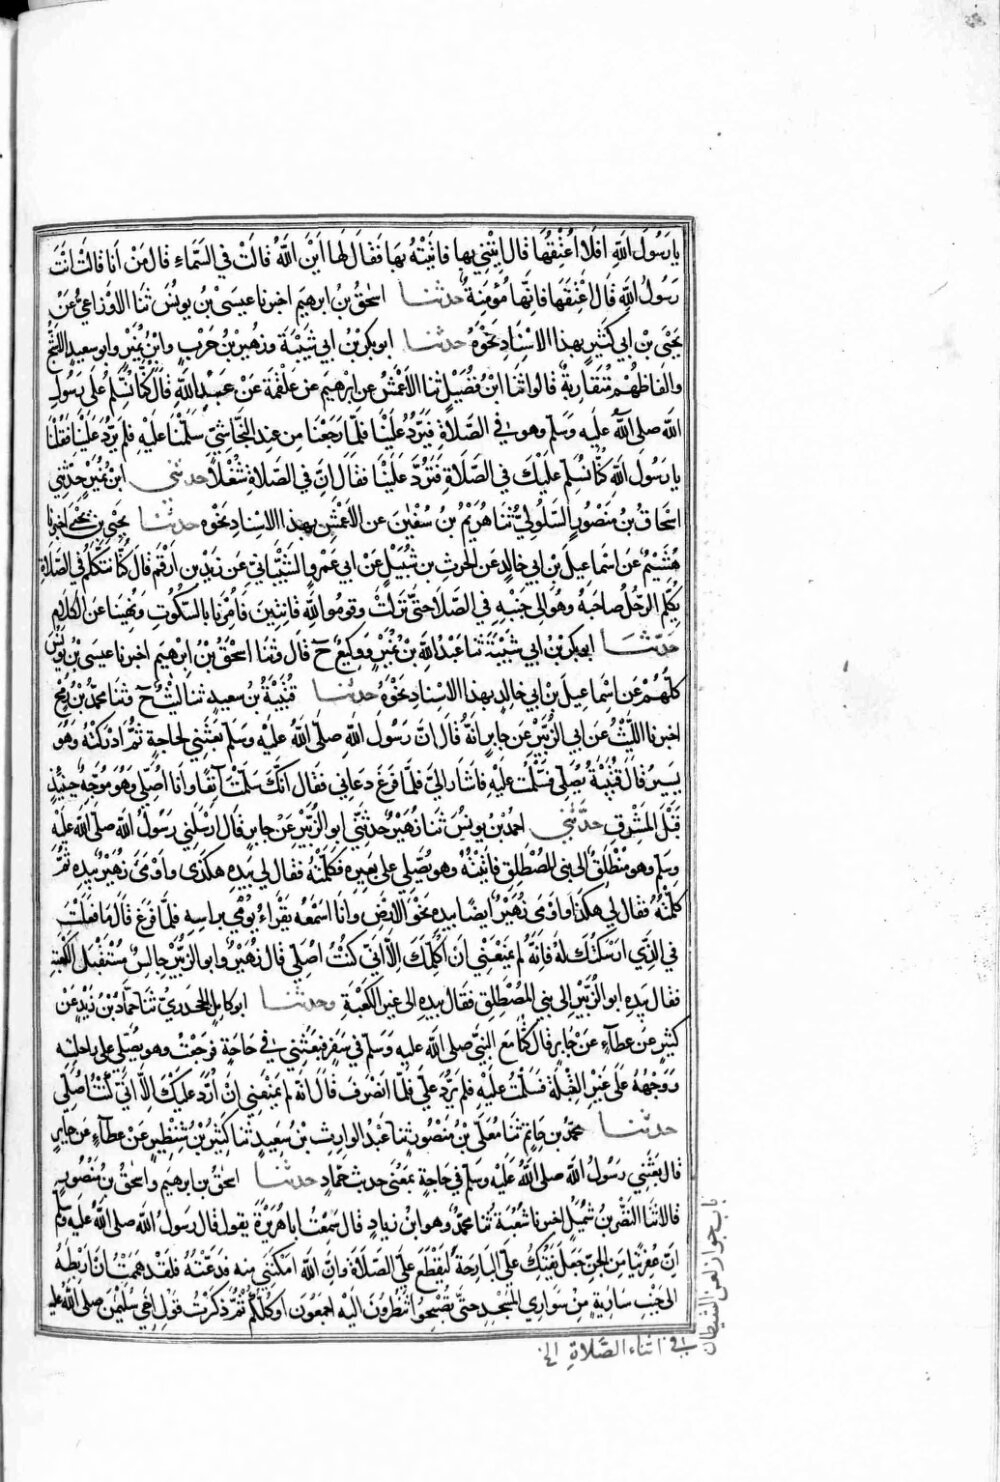 يا رَسُولَ اللهِ اَفَلَا اُعْتِقُهَا قَالَ ائْتِنِي بِهَا فَاَتَيْتُهُ بِهَا فَقَالَ لَهَا اَيْنَ اللهُ قَالَتْ فِي السَّمَاءِ قَالَ مَنْ اَنَا قَالَتْ اَنْتَ
رَسُولُ اللهِ قَالَ اَعْتِقْهَا فَاِنَّهَا مُؤْمِنَةٌ حدثنا اسحٰقُ بن ابرهيم اخبرنا عيسَى بْنُ يونُسَ ثنا الاَوْزاعيُّ عَنْ
يَحْيَى بن ابي كَثيرٍ بهذا الاسْنادِ نَحْوَهُ حدثنا ابو بكر بْنُ ابي شَيْبَةَ وزُهيرُ بْنُ حَرْبٍ وابْنُ نُمَيْرٍ وابو سعيدٍ الاشجُّ
والفاظهُمْ مُتَقاربةٌ قالوا ثنا ابْنُ فُضَيْلٍ ثنا الاَعْمَشُ عن ابرهيمَ عن عَلْقمةَ عَنْ عَبْدِ اللهِ قالَ كُنَّا نُسَلِّمُ عَلَى رَسُولِ
الله صلى اللهُ عليه وسَلم وهو في الصَّلَاةِ فيَرُدُّ عَلَيْنا فلَمَّا رَجَعْنا مِن عِندِ النَّجَاشيّ سَلَّمْنَا عَلَيْهِ فلم يَرُدَّ عَلَيْنا فقُلْنا
يا رَسُولَ اللهِ كُنَّا نُسَلِّمُ عَلَيْكَ في الصَّلَاةِ فَتَرُدُّ عَلَيْنا فقالَ اِنَّ في الصَّلَاةِ شُغْلًا حدثني ابنُ نُمَيْرٍ حدّثني
اسحاقُ بن مَنصُورٍ السَّلُوليُّ ثنا هُرَيْمُ بن سُفْيٰنَ عن الاَعْمَشِ بهذا الاسْنادِ نحْوَه حدثنا يَحيى بن يحيى اخبرنا
هُشَيْمٌ عن اسْماعيلَ بن ابي خالدٍ عَن الحرث بن شُبَيْلٍ عَنْ ابي عمرٍو الشَّيْبَاني عن زَيْد بن ارْقَم قال كُنَّا نَتَكَلَّمُ في الصَّلَاةِ
يُكَلِّمُ الرَّجُلُ صَاحِبَهُ وهو الى جَنْبِهِ في الصَّلَاةِ حتّى نَزَلتْ وقوموا لله قانِتِينَ فاُمِرْنا بالسُّكُوتِ ونُهينا عن الكلَامِ
حدثنا ابو بكر بْنُ ابي شَيْبَةَ ثنا عَبْدُ اللهِ بْنُ نُمَيْرٍ ووَكِيعٌ ح قال وثنا اسحٰقُ بْنُ ابْرهيمَ اخبرنا عيسَى بْنُ يونُسَ
كلُّهُمْ عَنْ اسْماعيلَ بن ابي خالدٍ بهذا الاسناد نحْوَهُ حدثنا قُتَيْبَةُ بْنُ سعيدٍ ثنا لَيْثٌ ح وثنا محمّدُ بْنُ رُمْحٍ
اخبرنا اللَّيْثُ عن ابي الزُّبَيْرِ عن جابرٍ انَّهُ قَالَ انَّ رَسُولَ اللهِ صلى اللهُ عَلَيْهِ وسَلم بَعَثَني لحاجةٍ ثمَّ ادْرَكتُهُ وهُوَ
يَسيرُ قال قُتَيْبةُ يُصَلّي فسَلَّمْتُ عليْهِ فاشَارَ اليَّ فلمَّا فرَغَ دعَاني فقال انَّكَ سَلَّمْتَ آنِفًا وانا اُصَلّي وهُوَ مُوَجِّهٌ حينئذٍ
قِبَلَ المَشْرِقِ حدّثني احمد بن يونُسَ ثنا زُهَيْرٌ حدّثني ابو الزُّبَيْرِ عَنْ جابرٍ قال ارْسَلَني رَسُولُ اللهِ صلى الله عليْهِ
وسلم وهو مُنْطَلِقٌ الى بني المُصْطَلِقِ فاتَيْتُهُ وهو يُصَلّي على بَعيرِه فكَلَّمْتُهُ فقال لي بيَدِهِ هكذى واَوْمَى زُهَيْرٌ بيَدِهِ ثمَّ
كلّمْتُهُ فقال لي هكذا فاَوْمى زُهَيْرٌ ايضًا بيده نَحْوَ الارْضِ وانا اسْمَعُه يَقْرَأُ يُومِي براسِهِ فلمَّا فرَغَ قالَ مَا فعَلْتَ
في الَّذِي ارْسَلْتُكَ لَهُ فَانَّهُ لم يَمْنَعْنِي اَنْ اُكَلِّمَكَ الَّا اَنِّي كُنْتُ اُصَلي قالَ زُهَيْرٌ وابو الزُّبَيْرِ جالسٌ مُسْتَقْبِلَ الكَعْبةِ
فقال بيَدِهِ ابو الزُّبَيْرِ الى بَني المُصْطَلِقِ فقالَ بيَدِهِ الى غير الكَعْبةِ وحدثنا ابو كاملٍ الجَحْدَريُّ ثنا حمَّادُ بْنُ زَيْدٍ عَنْ
كَثيرٍ عَن عطَآءٍ عَنْ جَابرٍ قال كُنَّا مَعَ النبيِّ صلى الله عليه وَسَلم في سَفَرٍ فبَعَثَني في حَاجَةٍ فرَجَعْتُ وهو يُصَلّي على راحلتِهِ
وَوَجْهُهُ عَلَى غَيْرِ القِبْلَةِ فسَلَّمْتُ عَلَيْهِ فلم يَرُدَّ عليَّ فلمّا انْصَرَفَ قالَ انَّه لم يَمْنَعْني انْ اَرُدَّ عليْكَ الَّا انّي كُنْتُ اُصَلّي
حدثنا محمَّد بن حاتِمٍ ثنا مُعَلَّى بْنُ مَنْصُورٍ ثنا عَبْدُ الوارث بْنُ سَعيدٍ ثنا كَثيرُ بْنُ شِنْظيرٍ عَنْ عطَآءٍ عَنْ جابرٍ
قال بَعَثَني رسولُ الله صلى اللهُ عَلَيْهِ وسلم في حاجةٍ بمَعْنَى حديث حمَّادٍ حدثنا اسحٰق بن ابرهيم واسحٰقُ بن مَنْصُورٍ
قالا ثنا النَّضْرُ بن شُمَيْلٍ اخبرنا شُعْبَةُ ثنا محمَّدٌ وهو ابْن زيادٍ قال سَمِعْتُ اباهُرَيْرَةَ يقولُ قال رسُولُ اللهِ صلى اللهُ عليْهِ وسلم
انَّ عِفْريتًا مِنَ الجِنِّ جَعَلَ يَفْتِكُ عَليَّ البارحَةَ لِيَقْطَعَ عليَّ الصَّلَاةَ وانَّ اللهَ اَمْكَنَني مِنه فذَعَتُّهُ فلقد هَمَمْتُ انْ اَرْبِطَهُ
الى جَنْبِ سَاريَةٍ مِنْ سَوارِي المَسْجدِ حتّى تُصْبحُوا تَنْظُرونَ الَيْهِ اجْمَعُونَ اوْ كُلُّكُمْ ثمَّ ذكَرْتُ قولَ اَخِي سُلَيْمٰنَ صلى اللهُ عليه
باب جواز لعن الشيطان
في اثناء الصَّلَاةِ الخ